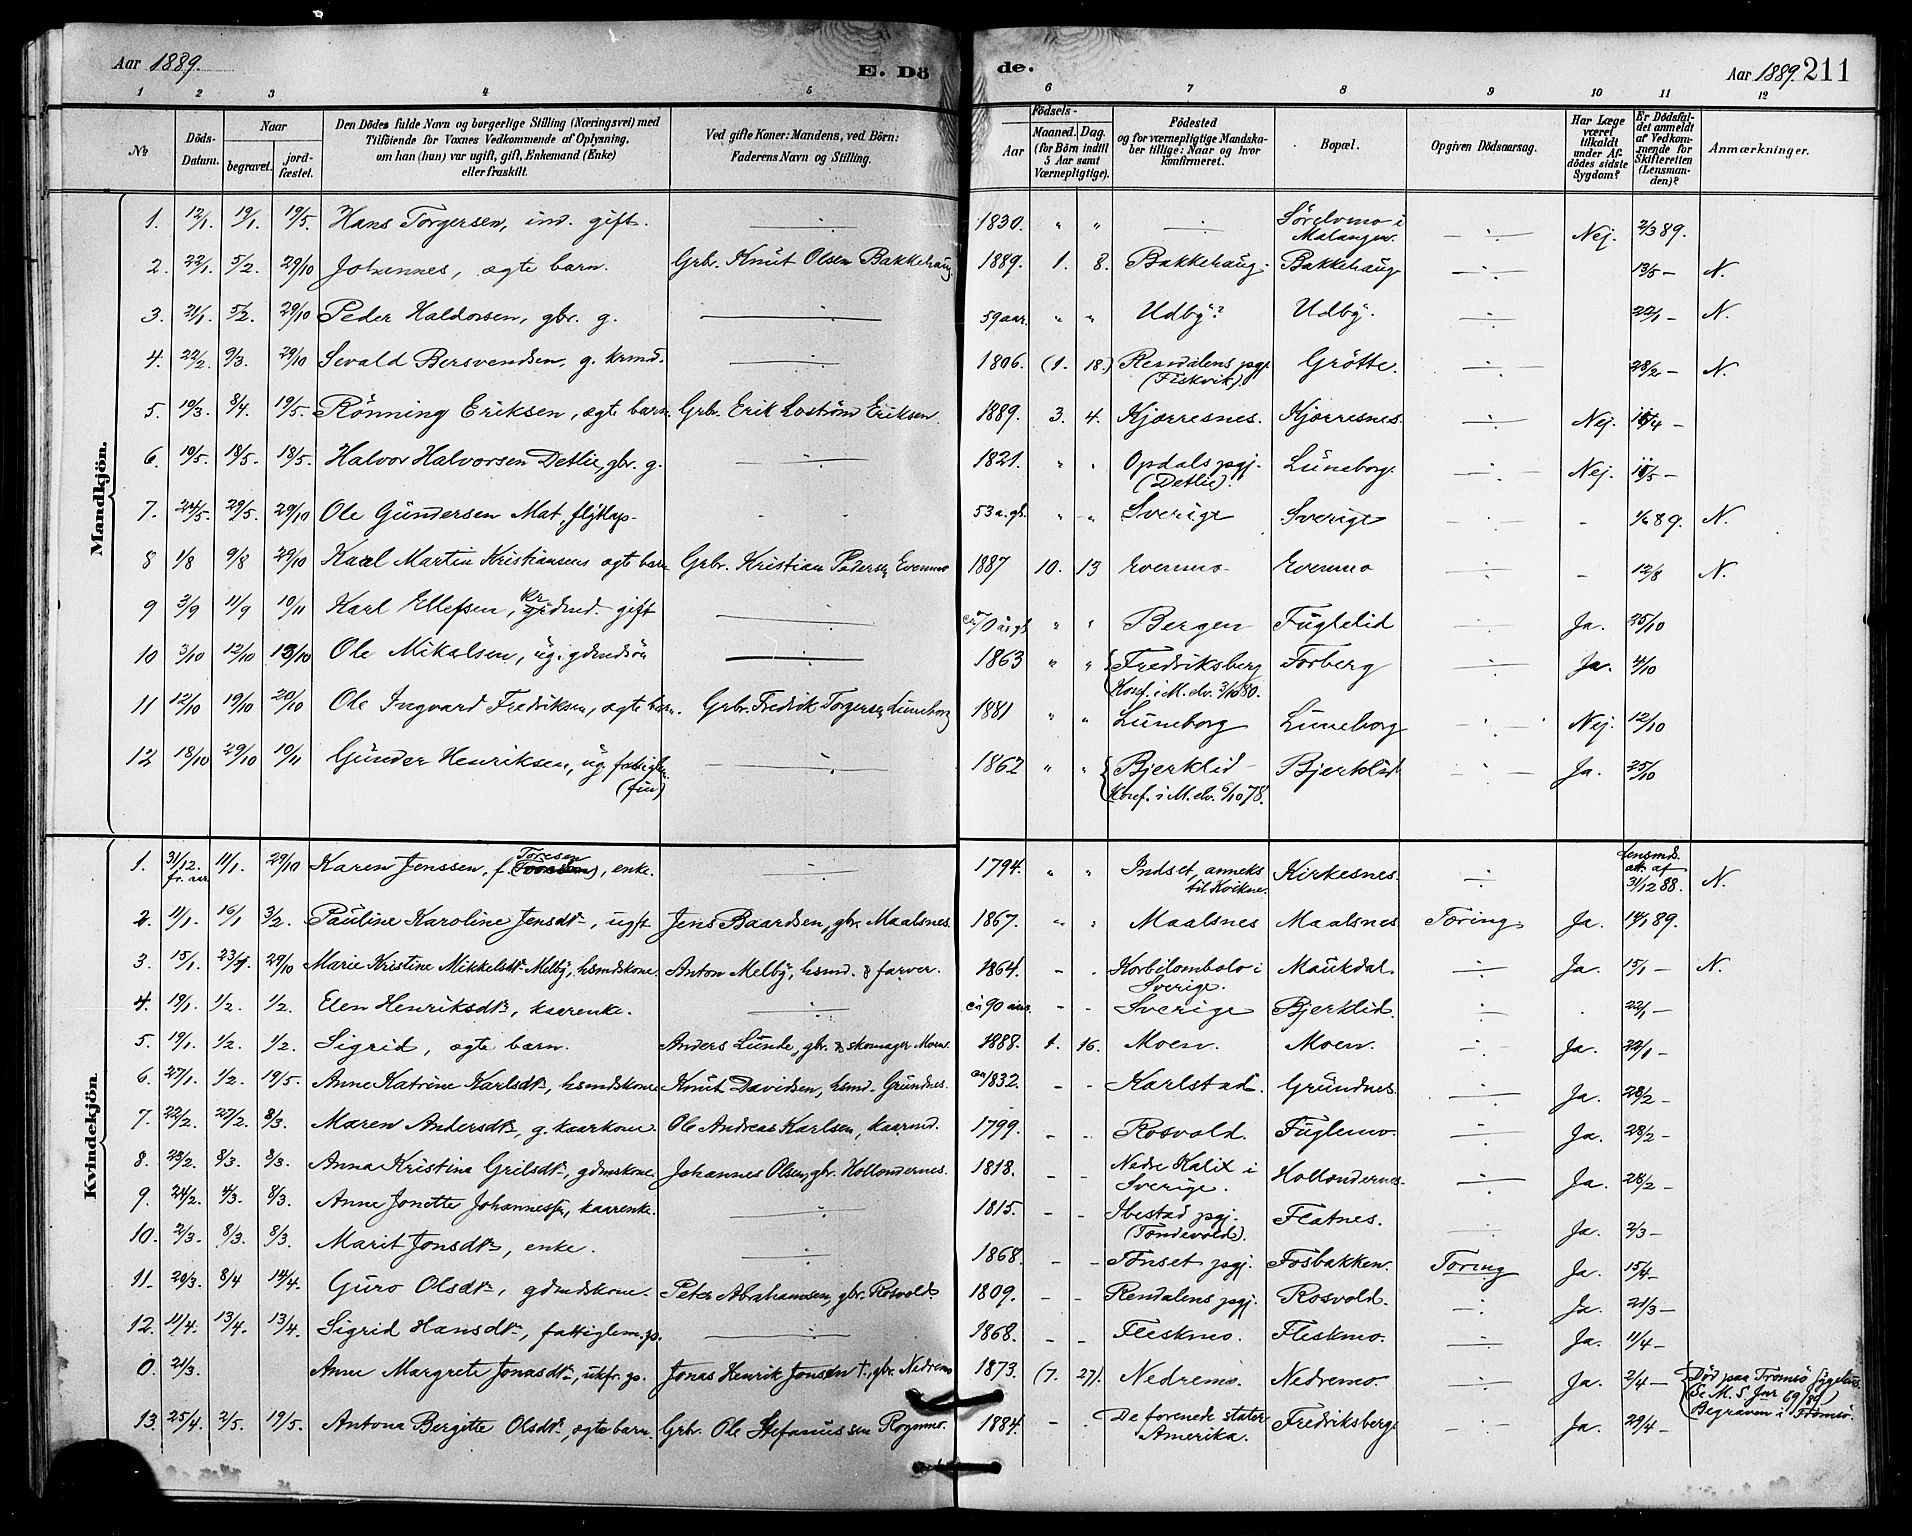 Aar 1889.
E. Dö
de.
Aar 1889. 211
1 2 3 4 5 6 7 8 9 10 11 12
№
Döds-Datum.
Naar
begravet.
jord-fæstet.
Den Dödes fulde Navn og borgerlige Stilling (Næringsvei) med
Tilföiende for Voxnes Vedkommende af Oplysning,
om han (hun) var ugift, gift, Enkemand (Enke)
eller fraskilt.
Ved gifte Koner: Mandens, ved Börn:
Faderens Navn og Stilling.
Födsels-
Aar
Maaned. Dag.
(for Börn indtil
5 Aar samt
Værnepligtige).
Födested
og for værnepligtige Mandska-
ber tillige: Naar og hvor
konfirmeret.
Bopæl.
Opgiven Dödsaarsag.
Har Læge
været
tilkaldt
under Af-
dödes sidste
Sygdom?
Er Dödsfal-
det anmeldt
af Vedkom-
mende for
Skifteretten
(Lensman-
den)?
Anmærkninger.
Mandkjön.
1. 12/1. 19/1. 19/5. Hans Torgersen, ind. gift. 1830. " " Sörelvmo i Malangen. Nej. 2/3 89.
2. 22/1. 5/2. 29/10 Johannes, ægte barn. Grb. Knut Olsen Bakkehaug 1889. 1. 8. Bakkehaug. Bakkehaug. 13/5 – N.
3. 21/1. 5/2. 29/10 Peder Haldorsen, gbr. g. 59 aar. " " Udby? Udby. 22/1 – N.
4. 22/2. 9/3. 29/10 Sevald Bersvendsen, g. krmd. 1806. (1. 18.) Rendalens pgj. (Fiskvik) Grötte. 28/2 – N.
5. 10/3. 8/4. 19/5. Rönning Eriksen, ægte barn. Grb. Erik Loström Eriksen. 1889. 3. 4. Kjærresnes. Kjærresnes. Nej.
6. 10/5. 18/5. 18/5. Halvor Halvorsen Detlie, gbr. g. 1821. " " Opdals pgj. (Detlie). Luneborg. Nej.
7. 24/5. 29/5. 29/10 Ole Gundersen Mat, flytlap. 53 a. gl. " " Sverige Sverige 1/6 89. N.
8 1/8 9/8 29/10 Karl Martin Kristiansen ægte barn Grb. Kristian Pedersen Evenmo 1887 10. 13 Evenmo Evenmo 12/8 N.
9 3/9 11/9 10/11 Karl Ellefsen, gift 70 år gl. " " Bergen Fuglelid Ja. 25/10
10 3/10 12/10 13/10 Ole Mikalsen, ug. gdmdsön 1863 " " Fredriksberg Konf. i M.elv. 3/10 80. Forberg Ja. 4/10
11 12/10 19/10 20/10 Ole Ingvard Fredriksen, ægte barn. Grbr. Fredrik Torgersen Luneborg 1881 " " Luneborg Luneborg Nej. 12/10
12 18/10 29/10 10/11 Gunder Henriksen, ug. fattiglem. (fin) 1862 " " Bjerklid Konf. i M.elv. 6/10 78. Bjerklid Ja. 25/10
Kvindekjön
1. 31/12. fr. aar 11/1. 29/10 Karen Jenssen, f. Toresen, enke. 1794. " " Indset, anneks til Kvikne. Kirkesnes. Lensmds. att. af 31/12 88. N.
2. 11/1. 16/1 3/2. Pauline Karoline Jensdtr, ugft Jens Baardsen, gbr. Maalsnes. 1867. " " Maalsnes Maalsnes Tæring. Ja. 14/1 89.
3. 15/1. 23/1. 29/10 Marie Kristine Mikkelsdtr Melby, hsmdskone. Anton Melby, hsmd. & farver. 1864. – – Korbilombolo i Sverige. Maukdal. Ja. 15/1 – N.
4. 19/1. 1/2. 1/2. Elen Henriksdtr, kaarenke. ca 90 aar. – – Sverige Bjerklid. 22/1 –
5. 19/1. 1/2. 1/2. Sigrid, ægte barn. Anders Lunde, gbr. & skomager Moen. 1888. 1. 16. Moen. Moen. Ja. 22/1 –
6. 27/1. 1/2. 19/5. Anne Katrine Karlsdtr, hsmdskone Knut Davidsen, hsmd. Grundnes. ca 1832. – – Karlstad. Grundnes. Ja. 28/2 –
7. 22/2. 27/2. 8/3. Maren Andersdtr, g. kaarkone. Ole Andreas Karlsen, kaarmd. 1799. – – Rosvold. Fuglemo. Ja. 28/2 –
8. 23/2. 8/3. 8/3. Anna Kristina Grilsdtr, gdmskone Johannes Olsen, gbr. Hollendernes. 1818. – – Nedre Kalix i Sverige. Hollendernes. Ja. 28/2 –
9. 24/2. 4/3. 8/3. Anne Jonette Johannesdtr, kaarenke. 1815. – – Ibestad pgj. (Tondevold). Flatnes. Ja. 2/3 –
10. 2/3. 8/3. 8/3. Marit Jonsdtr, enke. 1868. – – Tönset pgj. Fosbakken. Tæring Ja. 15/4 –
11. 20/3. 8/4 14/4. Guro Olsdtr, gdmdskone. Peter Abrahamsen, gbr. Rosvold. 1809. – – Rendalens pgj. Rosvold. Ja. 21/3 –
12. 11/4. 13/4. 13/4. Sigrid Hansdtr, fattiglem. 1868. – – Fleskmo. Fleskmo. Ja. 11/4 –
0. 21/3. Anne Margrete Jonasdtr, ukfr. Jonas Henrik Jonsen †, gbr. Nedremo 1873. (7. 27). Nedremo. Nedremo. Ja. 2/4 – Död paa Tromsö Sygehus. Se M. S. Jnr 69/89 Begraven i Tromsö.
13. 25/4. 2/5. 19/5. Antona Bergitte Olsdtr, ægte barn. Grb. Ole Stefanussen Rognmo. 1884. – – De forenede stater Amerika. Fredriksberg. Ja. 29/4 –